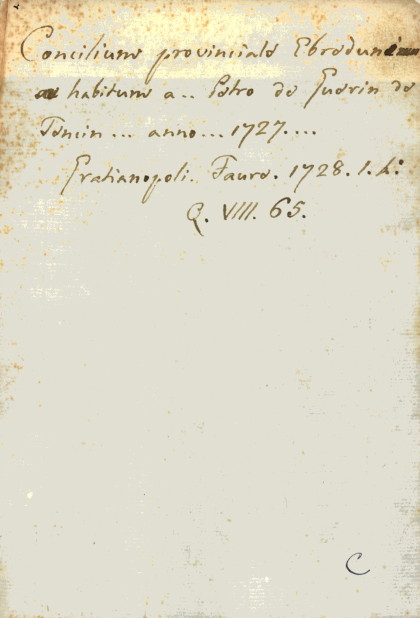 Concilium provinciale Ebrodunimum
habitum a.. Petro de Guerin de
Tencin... anno... 1727....
Gratianopoli. Faure. 1728. 1. 4.°
Q. VIII. 65.
C